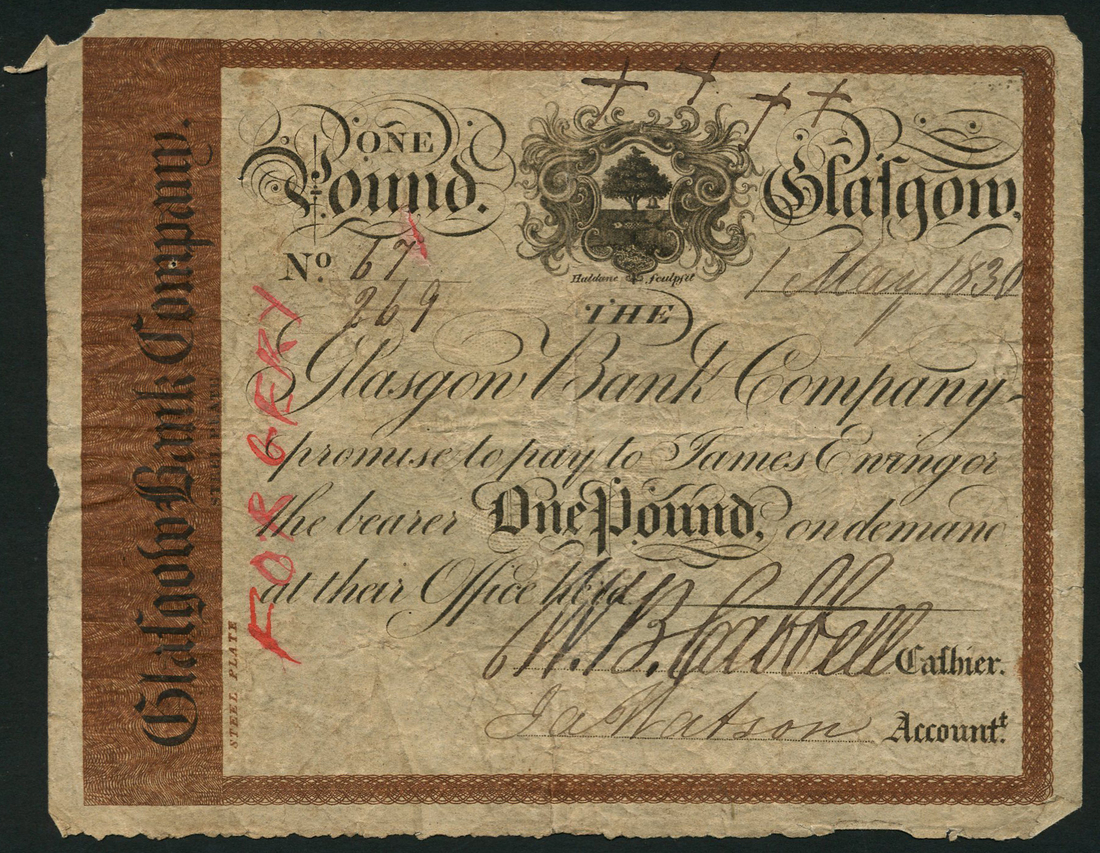 Glaſgow Bank Company.
STEEL PLATE
FORGERY
ONE
Pound.
Glaſgow,
No 67
269
Haldane Sculpſit
1 May 1830
THE
Glasgow Bank Company
promise to pay to James Ewing or
the bearer One Pound, on demand
at their Office here
W. B. Cabbell Caſhier.
Ja Watson Accountt.